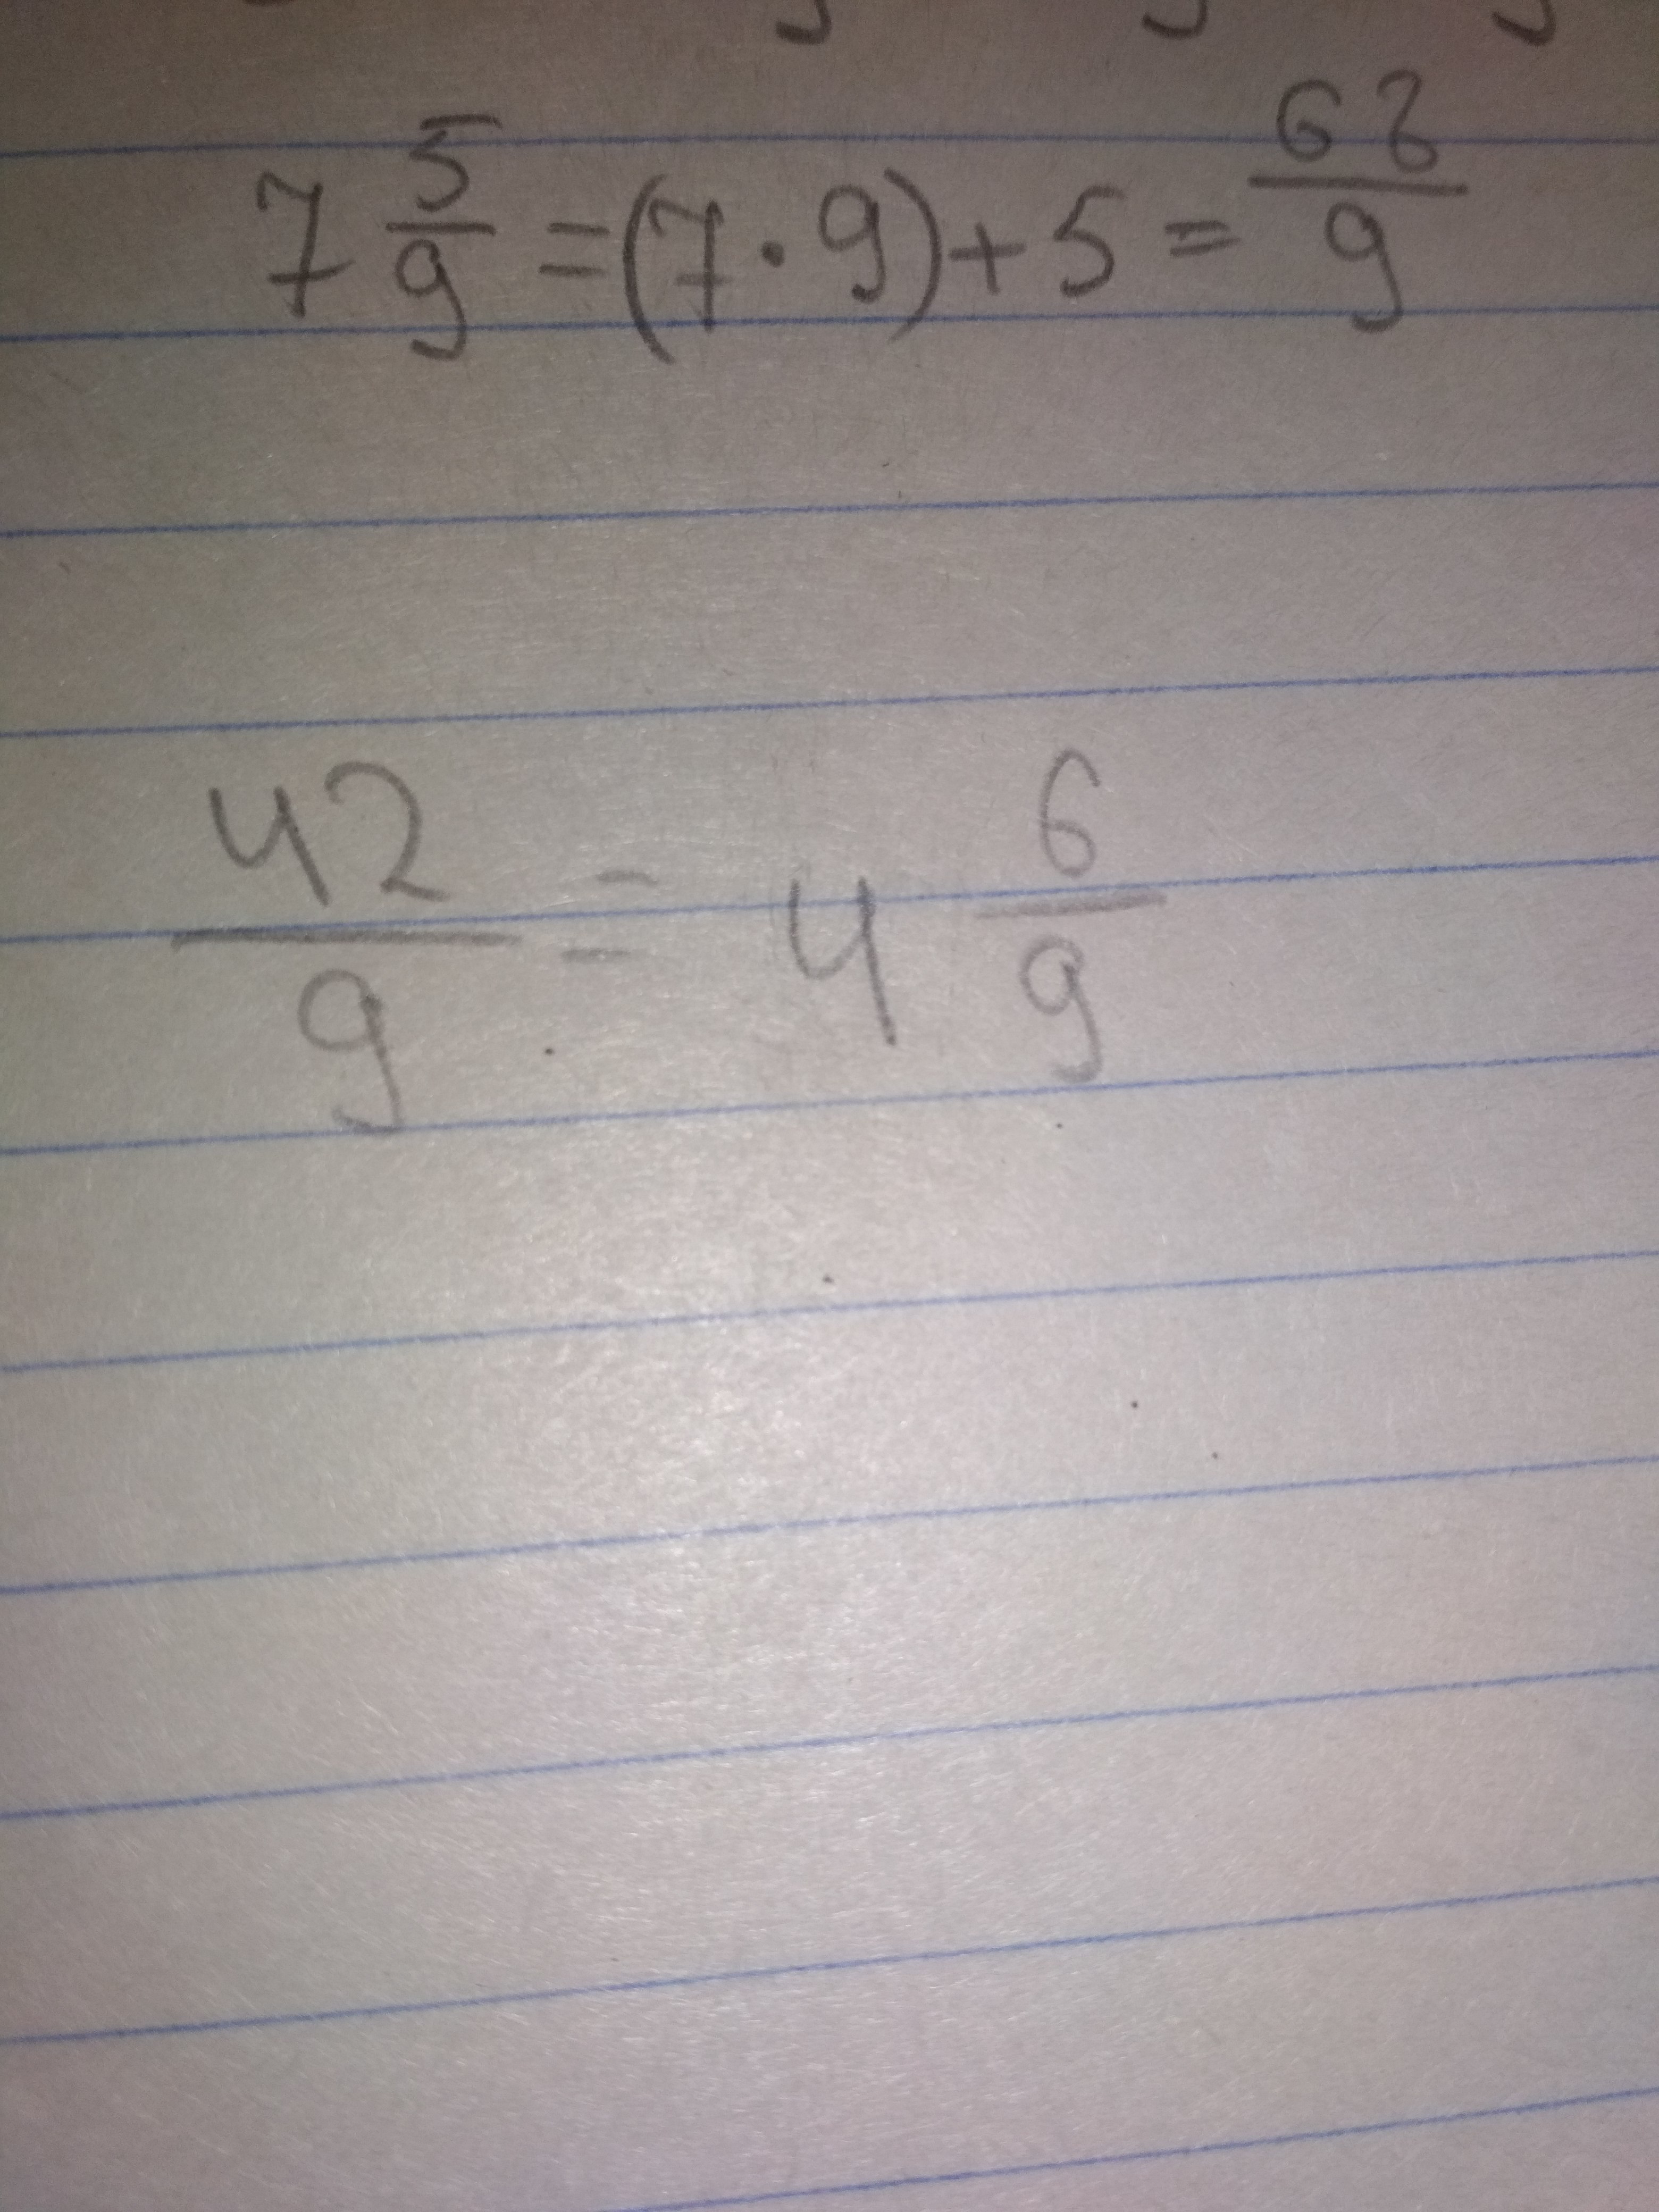 7 5/9 = (7 · 9) + 5 = 68/9
42/9 = 4 6/9